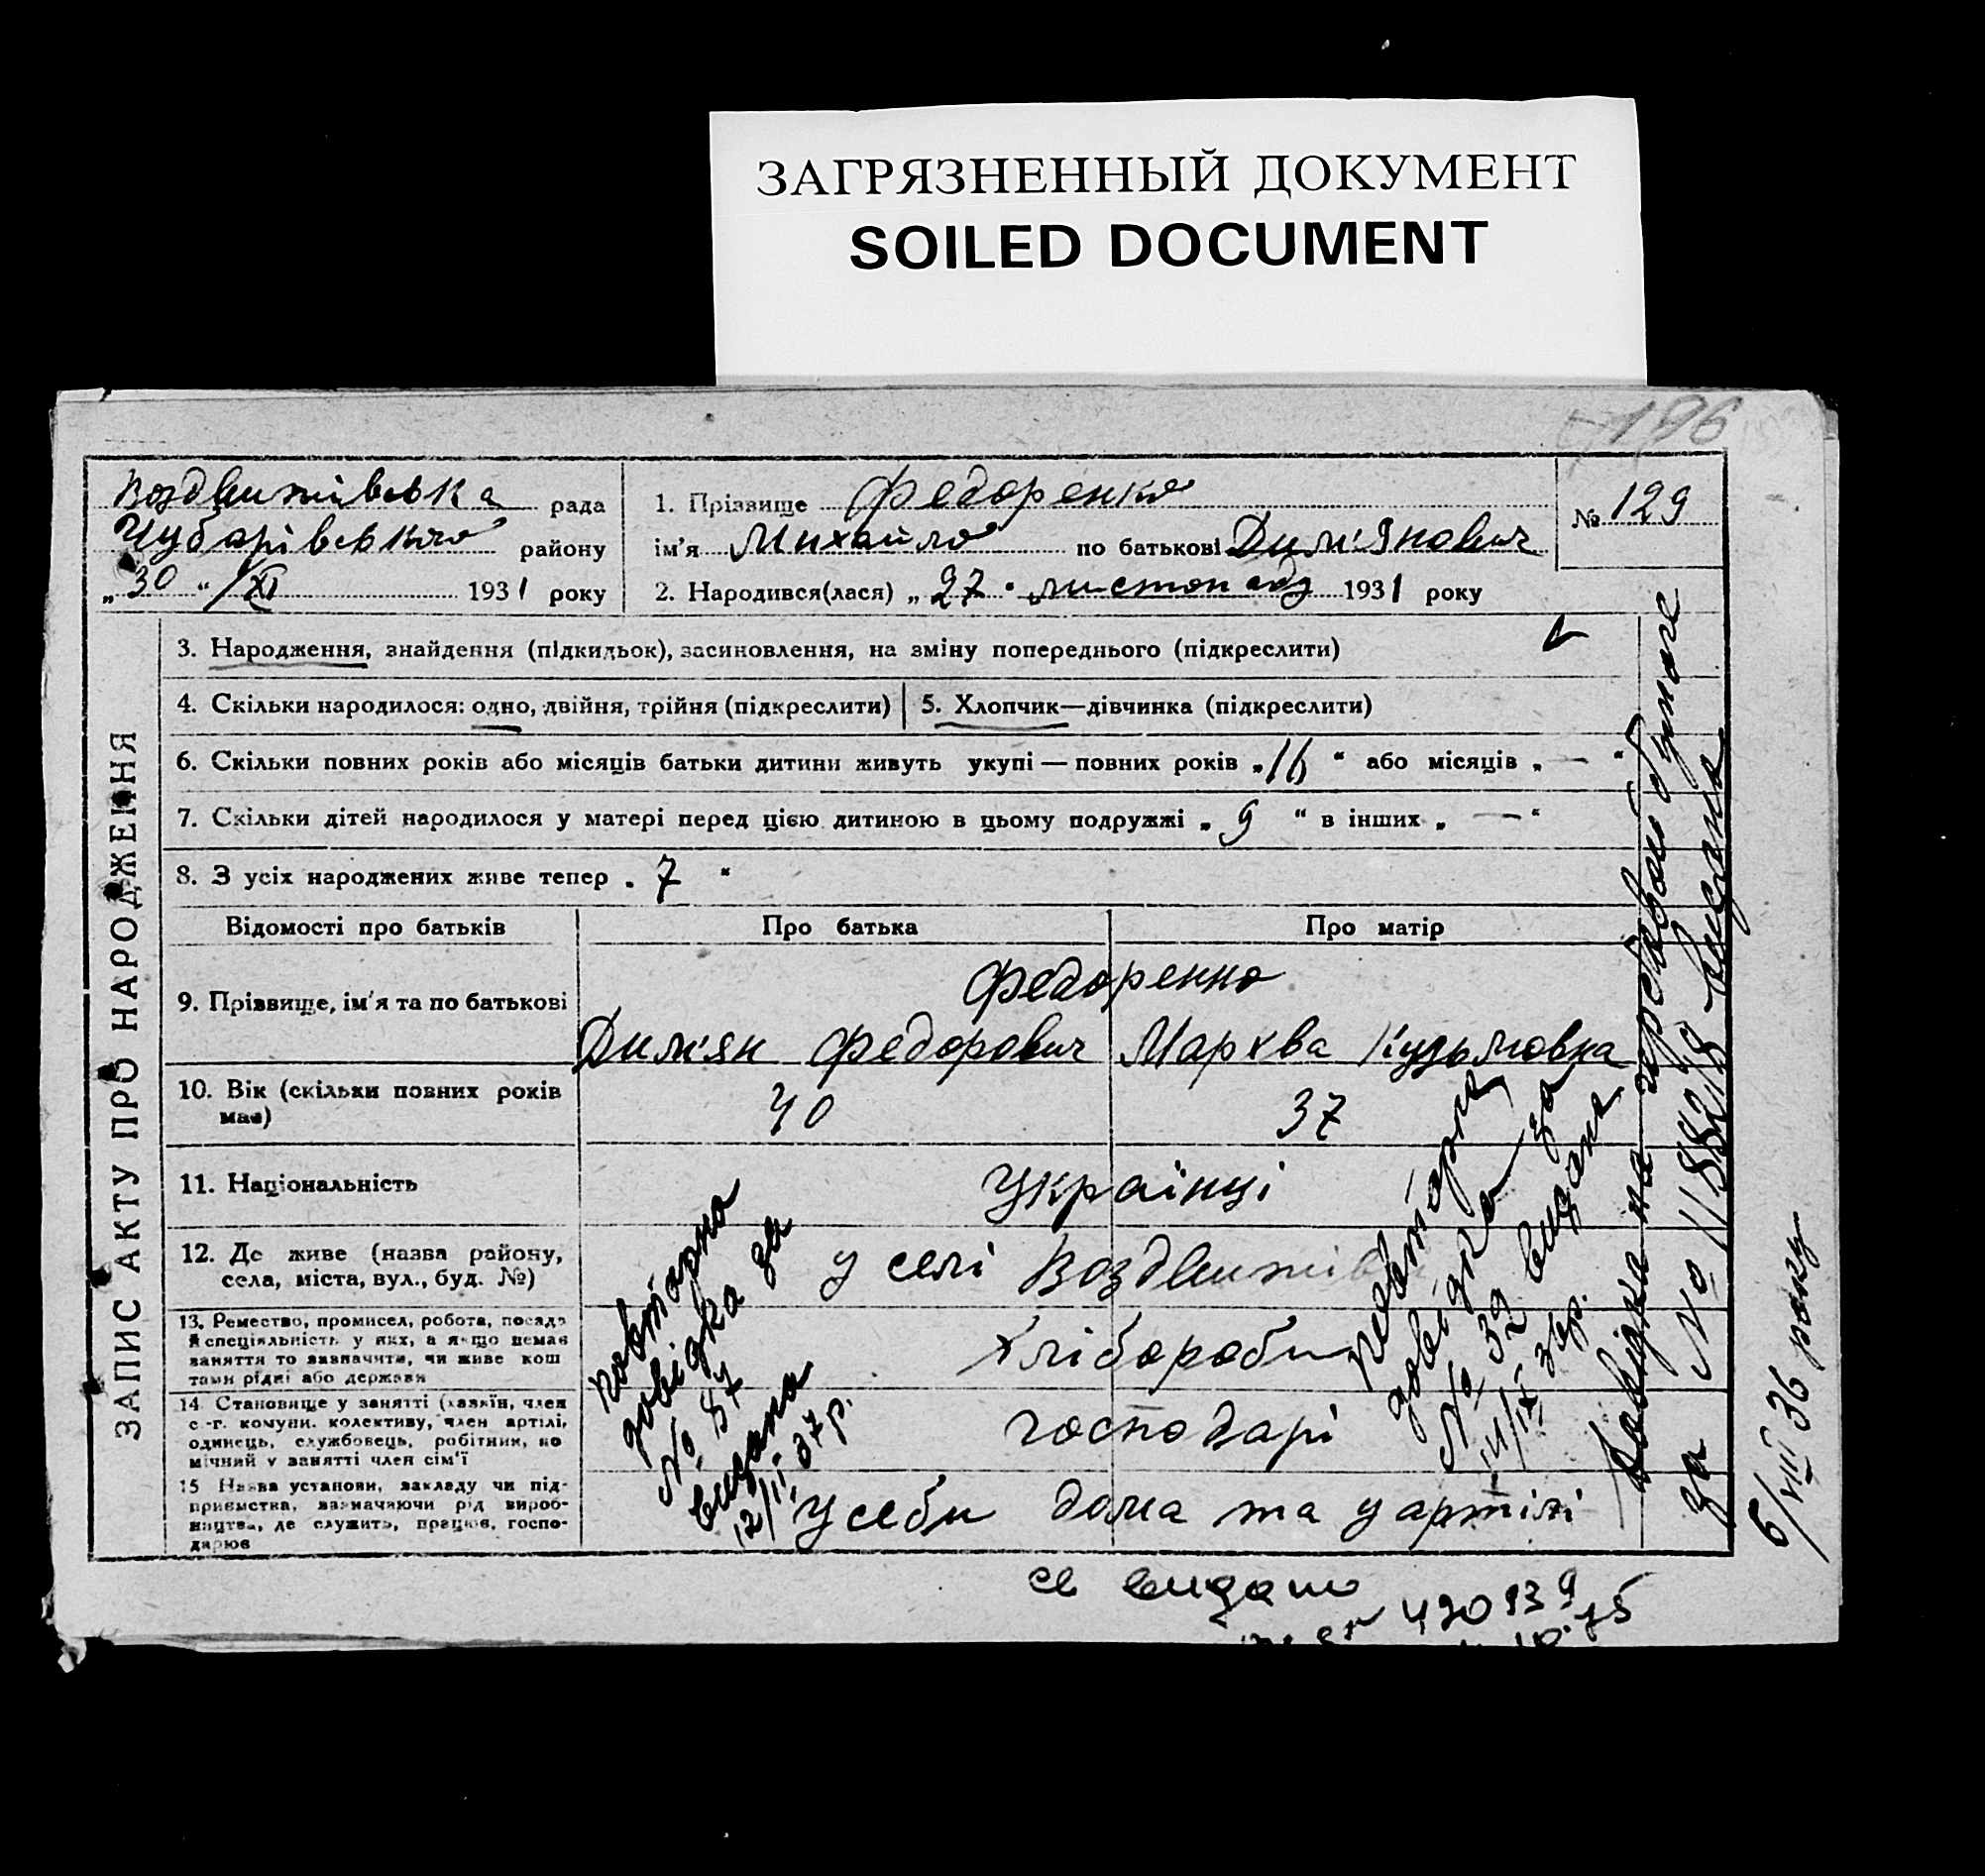 ЗАГРЯЗНЕННЫЙ ДОКУМЕНТ
SOILED DOCUMENT
196
Воздвижівська рада
Чубарівського району
„30“/XI 1931 року
1. Прізвище Федоренко
ім'я Михайло по батькові Дим'янович
№ 129
2. Народився(лася) „27" листопада 1931 року
ЗАПИС АКТУ ПРО НАРОДЖЕННЯ
3. Народження, знайдення (підкидьок), засиновлення, на зміну попереднього (підкреслити)
4. Скільки народилося: одно, двійня, трійня (підкреслити) 5. Хлопчик—дівчинка (підкреслити)
6. Скільки повних років або місяців батьки дитини живуть укупі — повних років „16“ або місяців „—“
7. Скільки дітей народилося у матері перед цією дитиною в цьому подружжі „9“ в інших „—“
8. З усіх народжених живе тепер „7“
Відомості про батьків Про батька Про матір
9. Прізвище, ім'я та по батькові
Федоренко
Дим'ян Федорович Марква Кузьмовна
10. Вік (скільки повних років має)
40 37
11. Національність
Українці
12. Де живе (назва району,
села, міста, вул., буд. №)
у селі Воздвижів
13. Ремество, промисел, робота, посада
й спеціяльність у них, а якщо немає
заняття то зазначити, чи живе кош
тами рідні або держави
Хлібороби
14. Становище у занятті (хазяїн, член
с.-г. комуни. колективу, член артілі,
одинець, службовець, робітник, по
мічний у занятті член сім'ї
господарі
15 Назва установи, закладу чи під-
приємства, зазначаючи рід вироб-
ництва, де служить, працює, госпо-
дарює
У себи дома та у артілі
повторна
довідка за
№ 87
видана
12/II 37р.
повторна
довідка за
№ 39 видана
14/IX 34р.
Довідка на гербовой бумаге
за № 118218 видана
5/VIII 36 року
св видано
420939